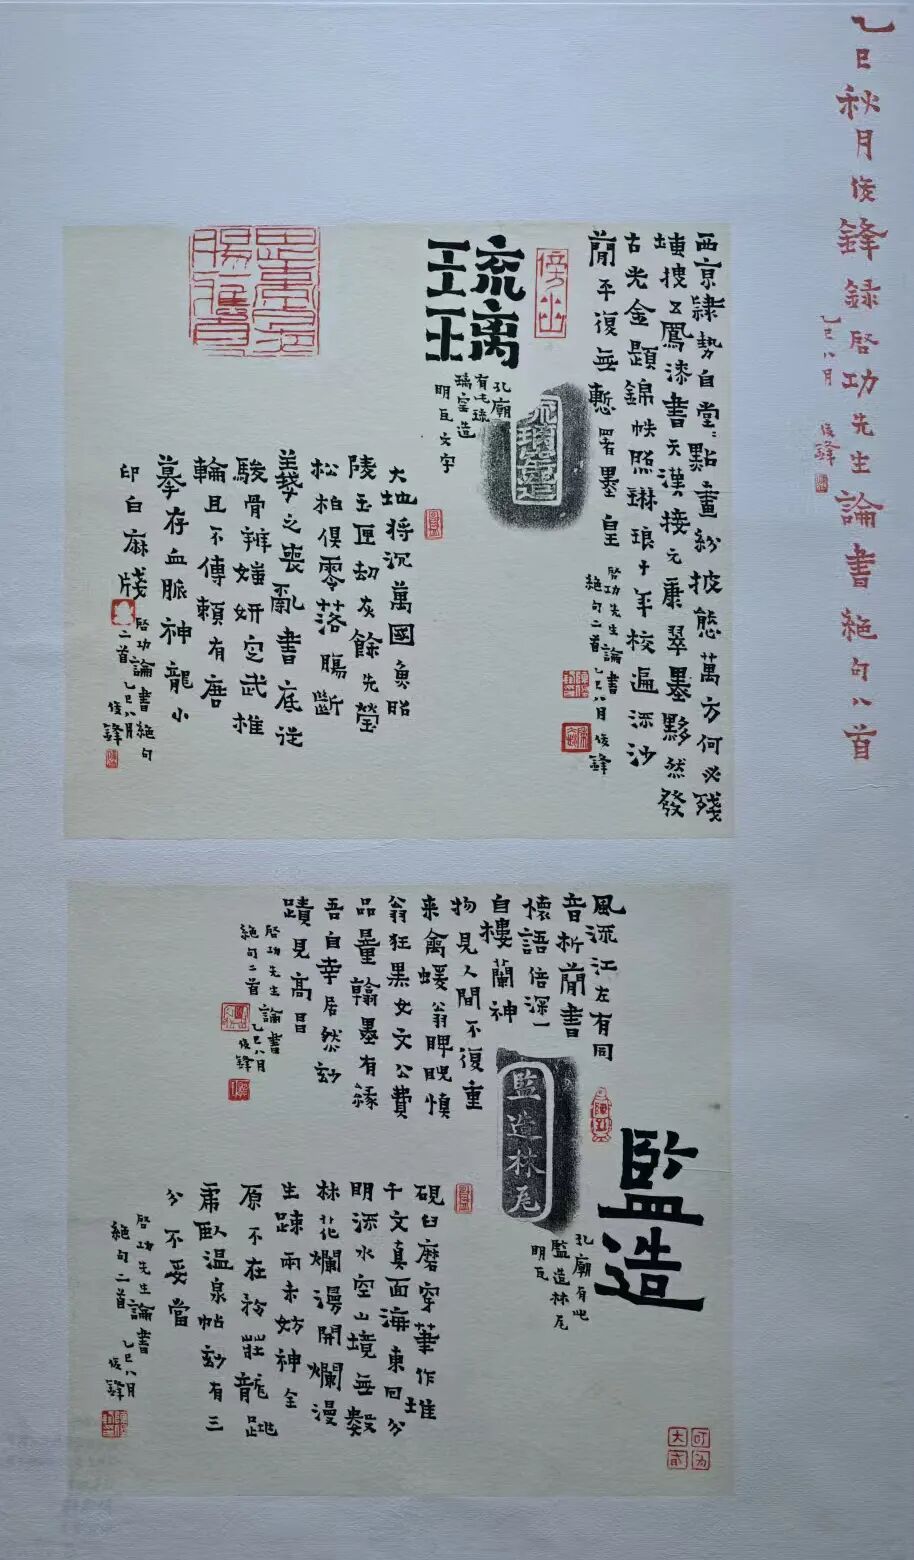 乙巳秋月俊鋒録啓功先生論書絕句八首
乙巳八月 俊鋒
西京隸勢自堂〻點畫紛披態萬方何必殘
墉搜五鳳漆書天漢接元康翠墨黟然發
古光金題錦帙照琳琅十年校遍流沙
簡平復無慙署墨皇
啓功先生論書
絕句二首乙巳八月俊鋒
琉璃
孔廟
有此琉
璃窑造
明瓦文字
大地將沉萬國魚昭
陵玉匣劫灰餘先塋
松柏俱零落腸斷
羲之喪亂書底從
駿骨辨媸妍定武椎
輪且不傳賴有唐
摹存血脈神龍小
印白麻牋
啓功論書絕句
二首乙巳八月
俊鋒
風流江左有同
音折簡書
懷語倍深一
自樓蘭神
物見人間不復重
來禽蝯翁睥睨慎
翁狂黑女文公費
品量翰墨有緣
吾自幸居然妙
蹟見高昌
啓功先生論書
絕句二首乙巳八月
俊鋒
監造
監造林尾
孔廟有此
監造林尾
明瓦
硯臼磨穿筆作堆
千文真面海東回分
明流水空山境無數
林花爛漫開爛漫
生疎兩未妨神全
原不在矜莊龍跳
虎臥溫泉帖妙有三
分不妥當
啓功先生論書
絕句二首乙巳八月
俊鋒